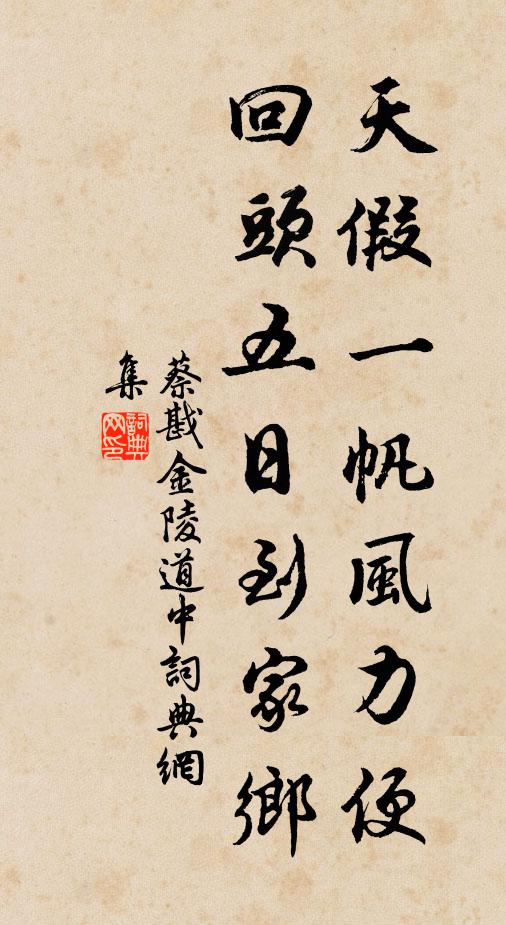 天假一帆風力便
回頭五日到家鄉
蔡戡金陵道中詞典網
集
詞典
网印